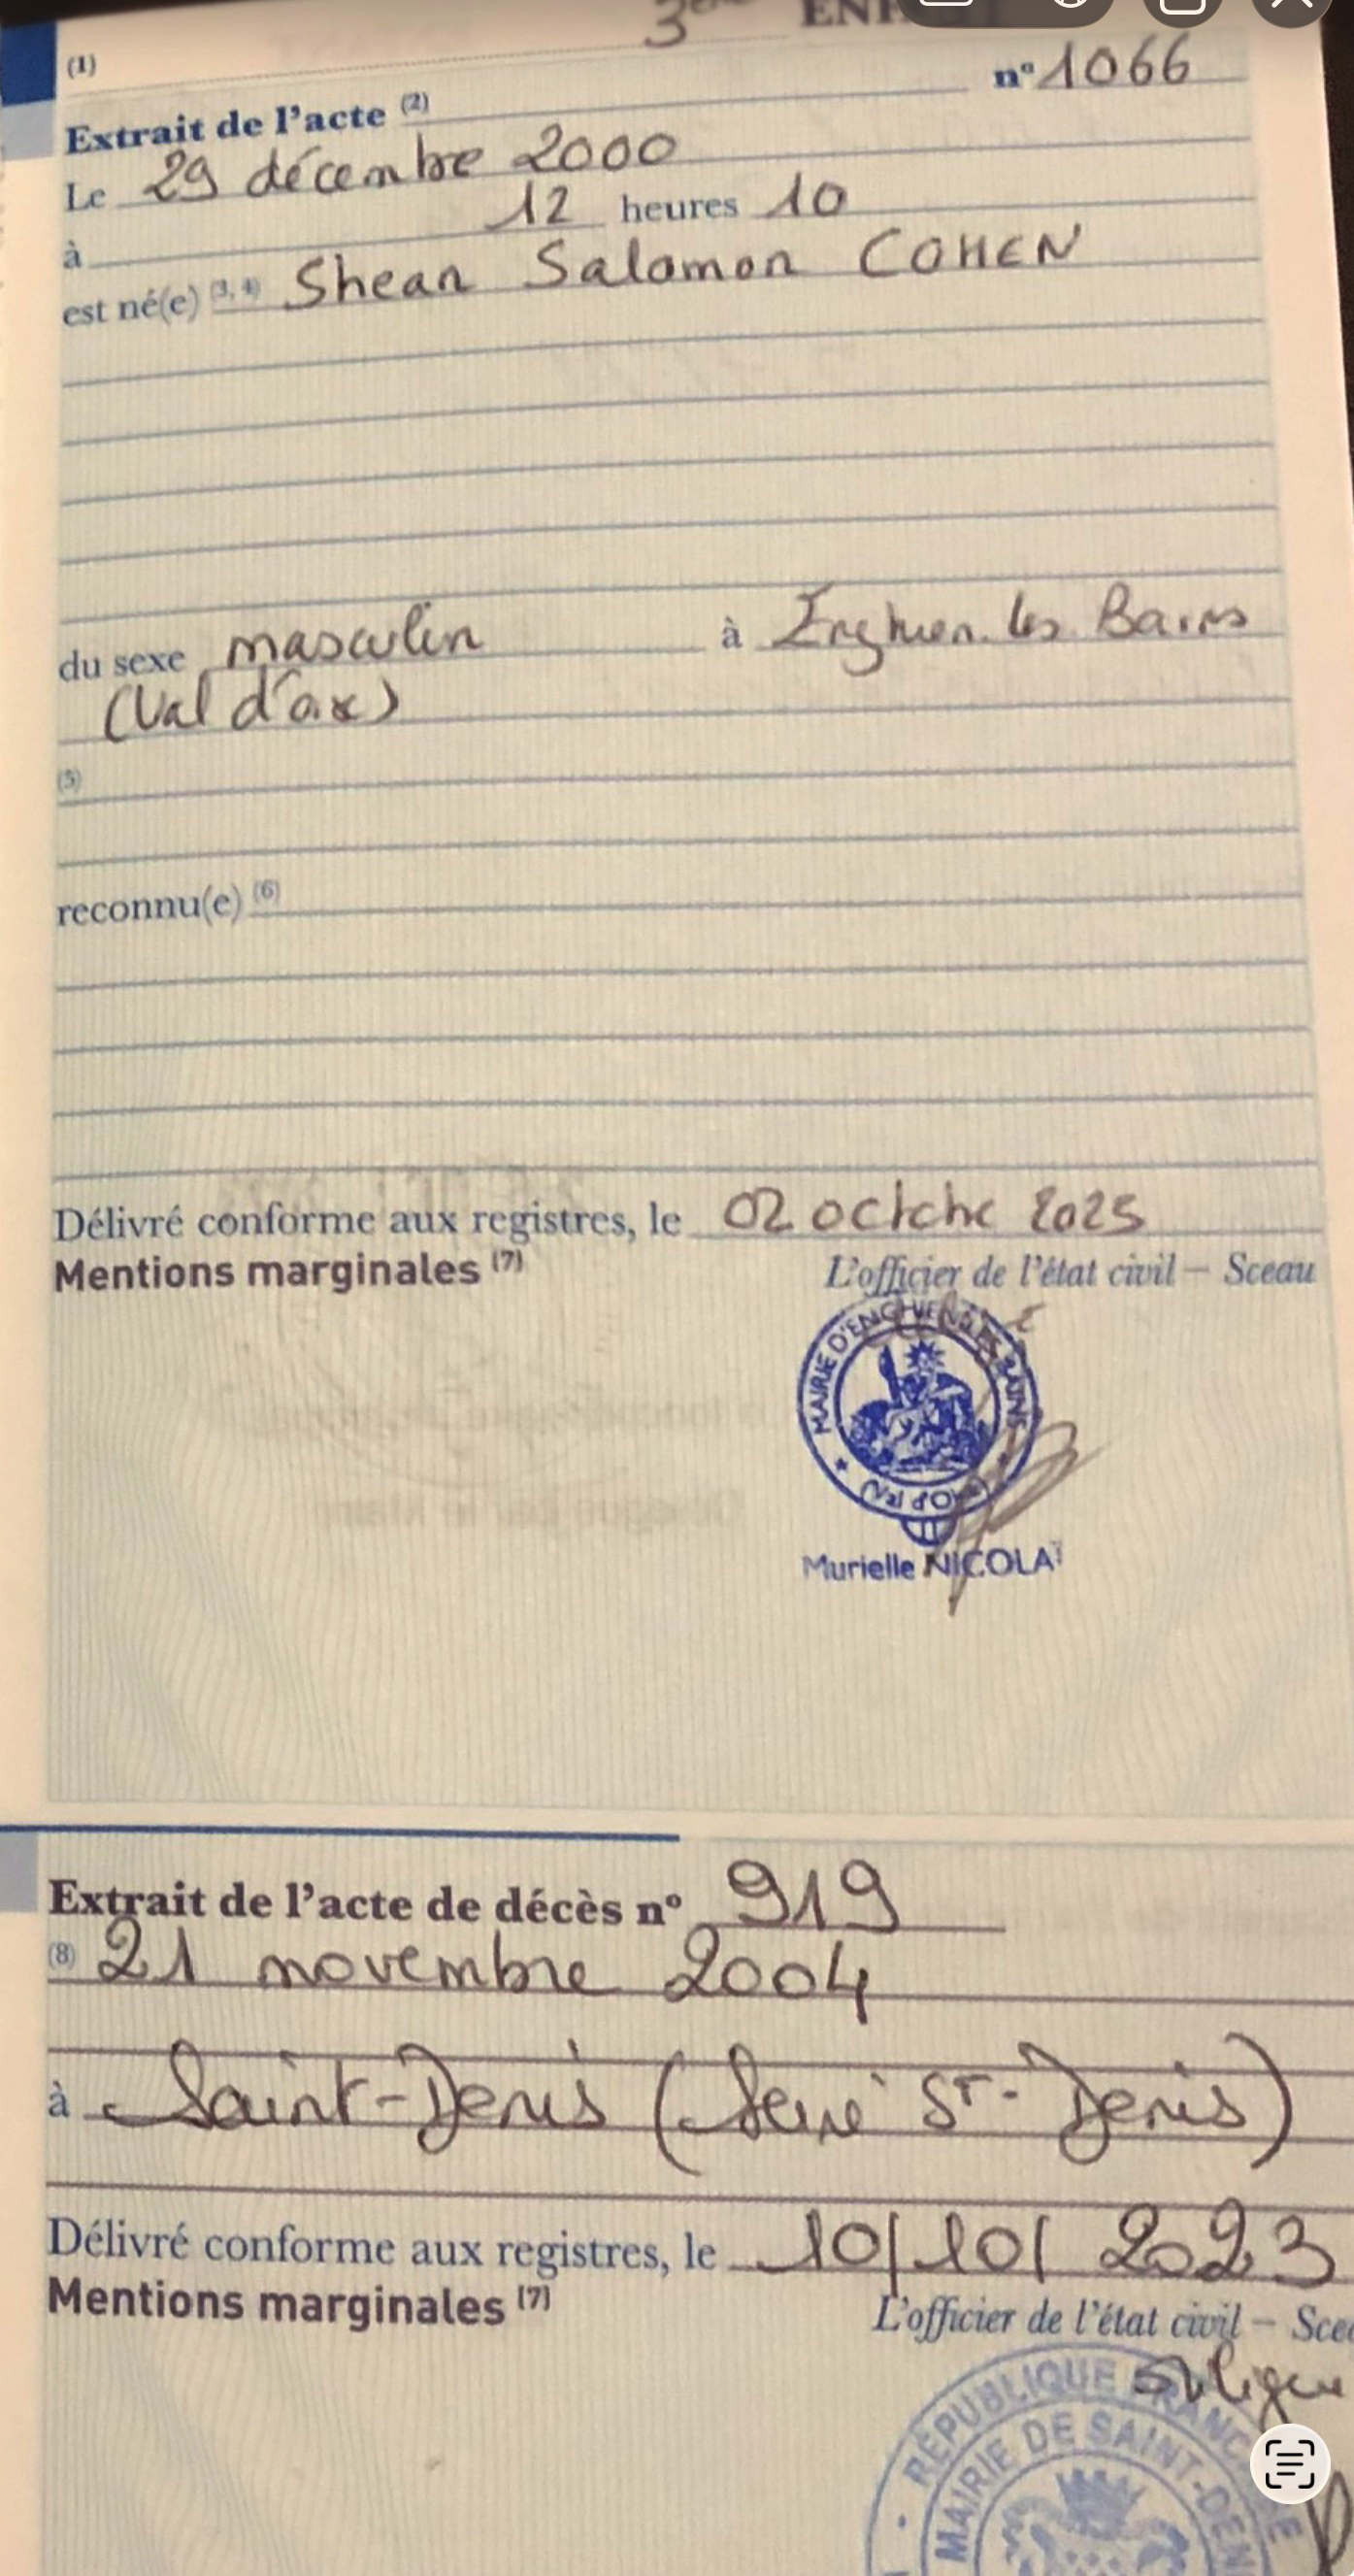 3ème ENF
(1)
Extrait de l'acte (2) n° 1066
Le 29 décembre 2000
à 12 heures 10
est né(e) (3, 4) Shean Salomon COHEN
du sexe masculin à Enghien. les Bains
(Val d'oise)
(5)
reconnu(e) (6)
Délivré conforme aux registres, le 02 octobre 2025
Mentions marginales (7) L'officier de l'état civil – Sceau
MAIRIE D'ENGHIEN LES BAINS
(Val d'Oise)
Murielle NICOLAÏ
Extrait de l'acte de décès n° 919
(8) 21 novembre 2004
à Saint-Denis (Seine St-Denis)
Délivré conforme aux registres, le 10/10/2023
Mentions marginales (7) L'officier de l'état civil – Scea
RÉPUBLIQUE FRANÇAISE
MAIRIE DE SAINT-DEN